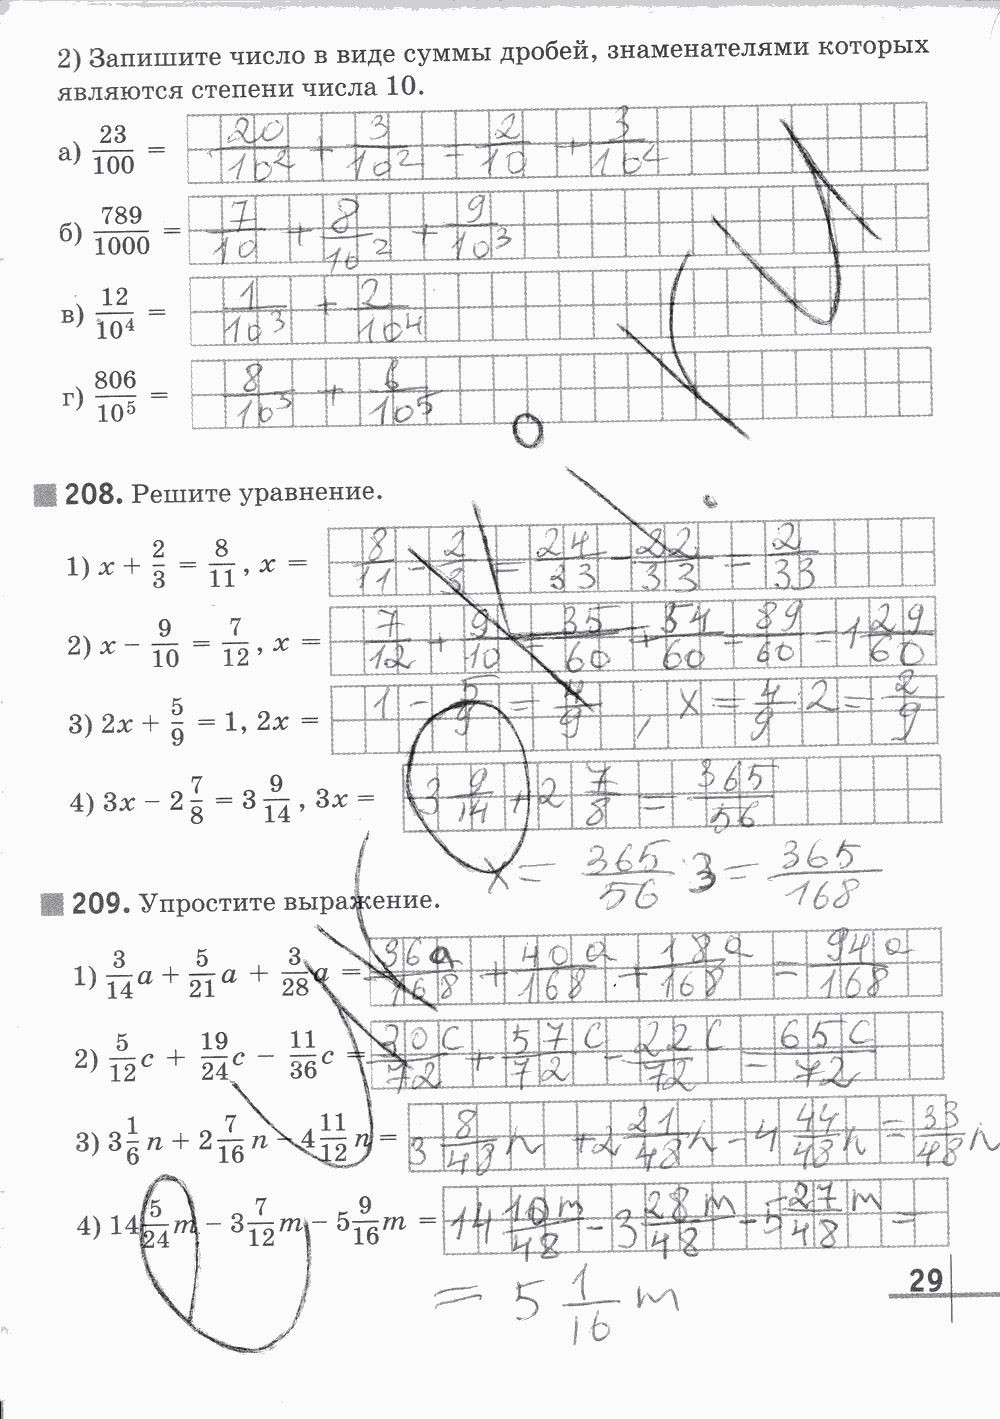 2) Запишите число в виде суммы дробей, знаменателями которых
являются степени числа 10.
а) 23/100 = 20/10² + 3/10² = 2/10 + 3/10²
б) 789/1000 = 7/10 + 8/10² + 9/10³
в) 12/10⁴ = 1/10³ + 2/10⁴
г) 806/10⁵ = 8/10³ + 6/10⁵
208. Решите уравнение.
1) x + 2/3 = 8/11, x = 8/11 - 2/3 = 24/33 - 22/33 = 2/33
2) x − 9/10 = 7/12, x = 7/12 + 9/10 = 35/60 + 54/60 = 89/60 = 1 29/60
3) 2x + 5/9 = 1, 2x = 1 - 5/9 = 4/9, x = 4/9 2 = 2/9
4) 3x − 2 7/8 = 3 9/14, 3x = 3 9/14 + 2 7/8 = 365/56
x = 365/56 · 3 = 365/168
209. Упростите выражение.
1) 3/14 a + 5/21 a + 3/28 a = 36a/168 + 40a/168 + 18a/168 = 94a/168
2) 5/12 c + 19/24 c − 11/36 c = 30c/72 + 57c/72 - 22c/72 = 65c/72
3) 3 1/6 n + 2 7/16 n − 4 11/12 n = 3 8/48 n + 2 21/48 n - 4 44/48 n = 33/48 n
4) 14 5/24 m − 3 7/12 m − 5 9/16 m = 14 10m/48 - 3 28m/48 - 5 27/48 m =
= 5 1/16 m
29